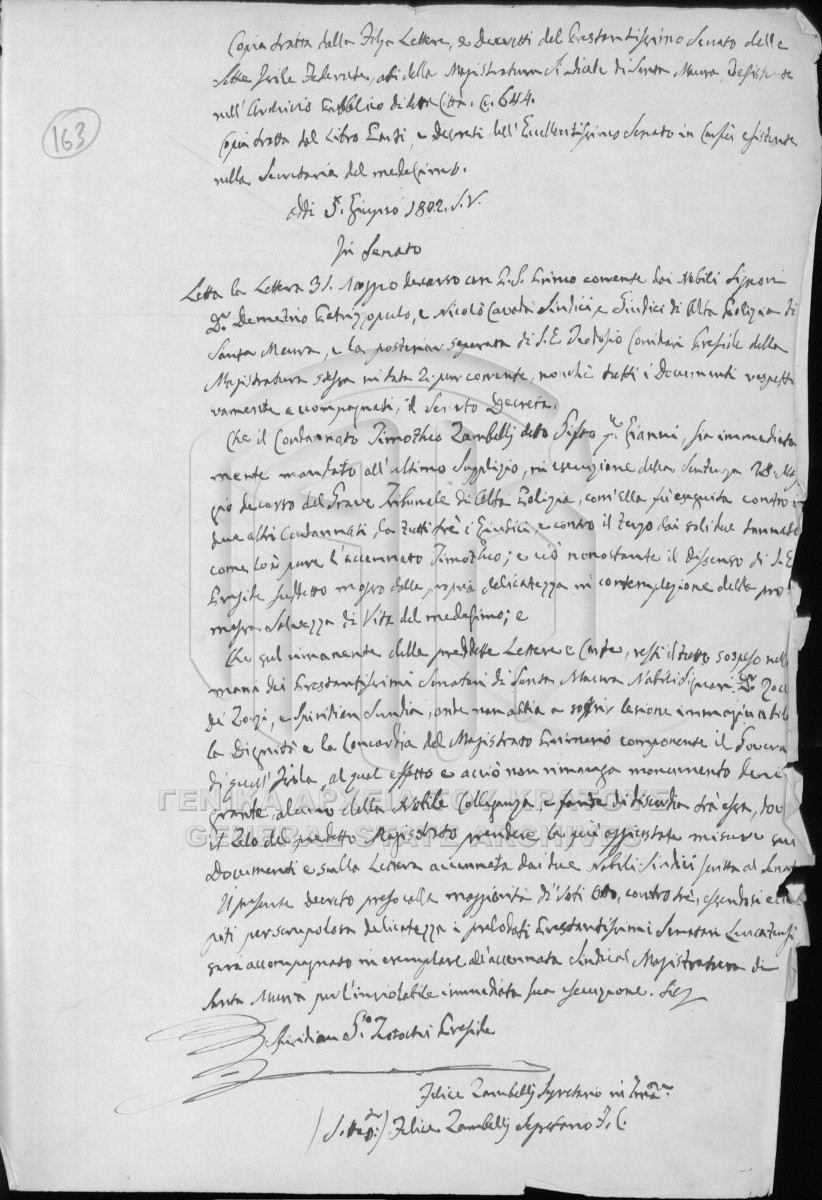 163
Copia tratta dalla Filza Lettere, e Decretti del Prestantissimo Senato delle
Sette Isole Federate, ad: della Magistratura Sindicale di Santa Maura, Resistente
nell'Archivio Pubblico di detta Città. C. 644.
Copia tratta dal Libro Parti, e Decreti dell'Eccellentissimo Senato in Corfù esistente
nella Secretaria del medesimo.
Addi 5. Giugno 1802. S.V.
In Senato
Letta la Lettera 31. Maggio decorso con P.S. Primo corrente dai Nobili Signori
Dr. Demetrio Petrizzopulo, e Nicolò Cavadà Sindici, e Giudici di Alta Polizia di
Santa Maura, e la posterior separata di S.E. Teodosio Conidari Preside della
Magistratura stessa in data 2: pur corrente, nonchè tutti i Documenti respetti
vamente accompagnati, il Senato Decreta.
Che il Condannato Timotheo Zambelli detto Sisto qm. Gianni, sia immediata
mente mandato all'ultimo Supplizio, in esecuzione della Sentenza 28. Mag
gio decorso del Grave Tribunale di Alta Polizia, com'ella fù eseguita contro i
due altri Condannati, da tutti trè i Giudici e contro il terzo dai soli due
come lo è pure l'accennato Timotheo; e ciò nonostante il Dissenso di S.E
Preside suddetto mosso dalla propria delicatezza in contemplazione della pro
messa Salvezza di Vita del medesimo; e
Che sul rimanente delle predette Lettere e Carte, resti il tutto sospeso nelle
mani dei Prestantissimi Senatori di Santa Maura Nobili Signori Dr.
de Zorzi, e Spiridion Sundia, onde non abbia a soffrir lesione immaginabile
la Dignità e la Concordia del Magistrato Primario componente il Govern
di quell'Isola, al qual effetto e acciò non rimanga monumento deni
grante, alcuno della Nobile Colleganza, e fonte di discordia trà essa, dov
il Zelo del predetto Magistrato prendere le più aggiustate misure sui
Documenti e sulla Lettera accennata dai due Nobili Sindici scritta al Senat
Il presente Decreto preso colla maggiorità di Voti Otto, contro trè, essendosi
per scrupolosa delicatezza i prelodati Prestantissimi Senatori Leucatensi
sarà accompagnato in esemplare all'accennata Sindical Magistratura di
Santa Maura per l'inviolabile immediata sua esecuzione. Sic
Spiridion Preside
Felice Zambelli Segretario in
Felice Zambelli Segretario
ΓΕΝΙΚΑ ΑΡΧΕΙΑ ΤΟΥ ΚΡΑΤΟΥΣ
GENERAL STATE ARCHIVES